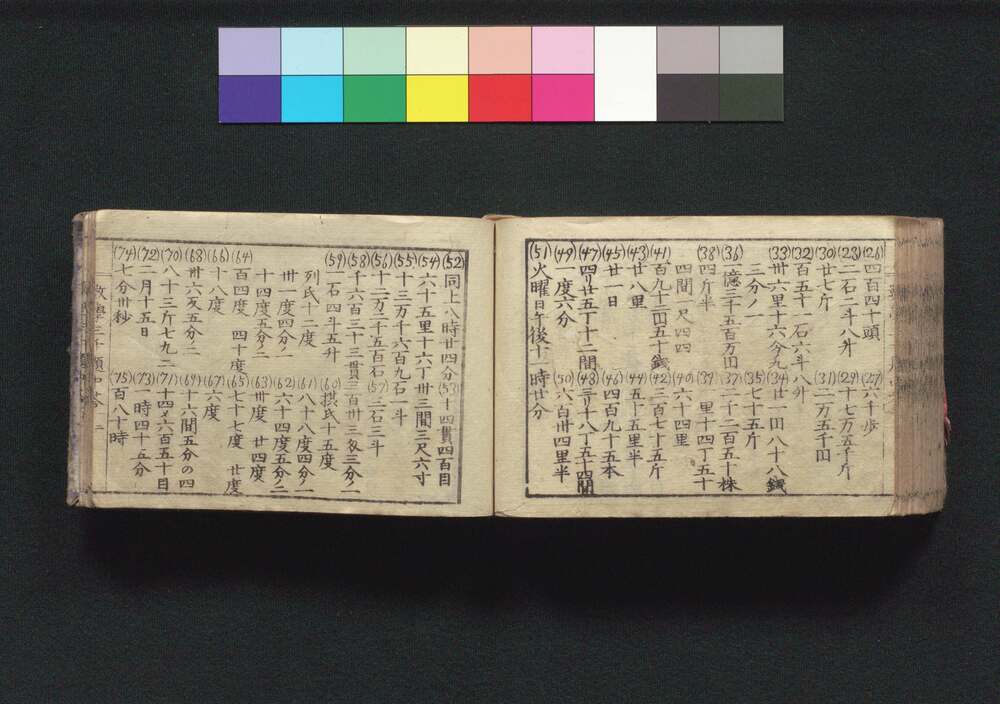 (26)四百四十頭 (27)六千歩
(28)二石二斗八升 (29)十七万五千斤
(30)廿七斤 (31)二万五千田
(32)百五十一石六斗八升
(33)卅六里十六今九 (34)廿一田八十八錢
三分ノ一 (35)七十五斤
(36)一億三千五百万田 (37)二千二百五十株
(38)四斤半 (39)里十四丁五十
四間一尺四四 (40)六十四里
(41)百九十三田五十錢 (42)三百七十五斤
(43)廿八里 (44)五十五里半
(45)廿一日 (46)四百九十五本
(47)四リ廿五丁十二間 (48)三リ十八丁五十四間
(49)一度六分 (50)六百卅四里半
(51)火曜日午後十一時廿分
(52)同上八時廿四分 (53)十四貫四百目
(54)六十五里十六丁卅三間三尺六寸
(55)十三万千六百九石一斗
(56)十二万二千五百石 (57)三石三斗
(58)千六百三十三貫三百卅三匁三分ノ一
(59)一石四斗五升 (60)摂氏十五度
列氏十二度 (61)八十八度四分ノ一
卅一度四分ノ一 (62)六十四度五分ノ二
十四度五分ノ二 (63)卅度 廿四度
(64)百四度 四十度 (65)七十七度 廿度
(66)十八度 (67)六度
(68)卅六反五分ノ二 (69)十六間五分の四
(70)八十三斤七九二 (71)十四メ六百五十目
(72)二月十五日 (73)時四十五分
(74)七分卅秒 (75)百八十時
数學三千題口答 二